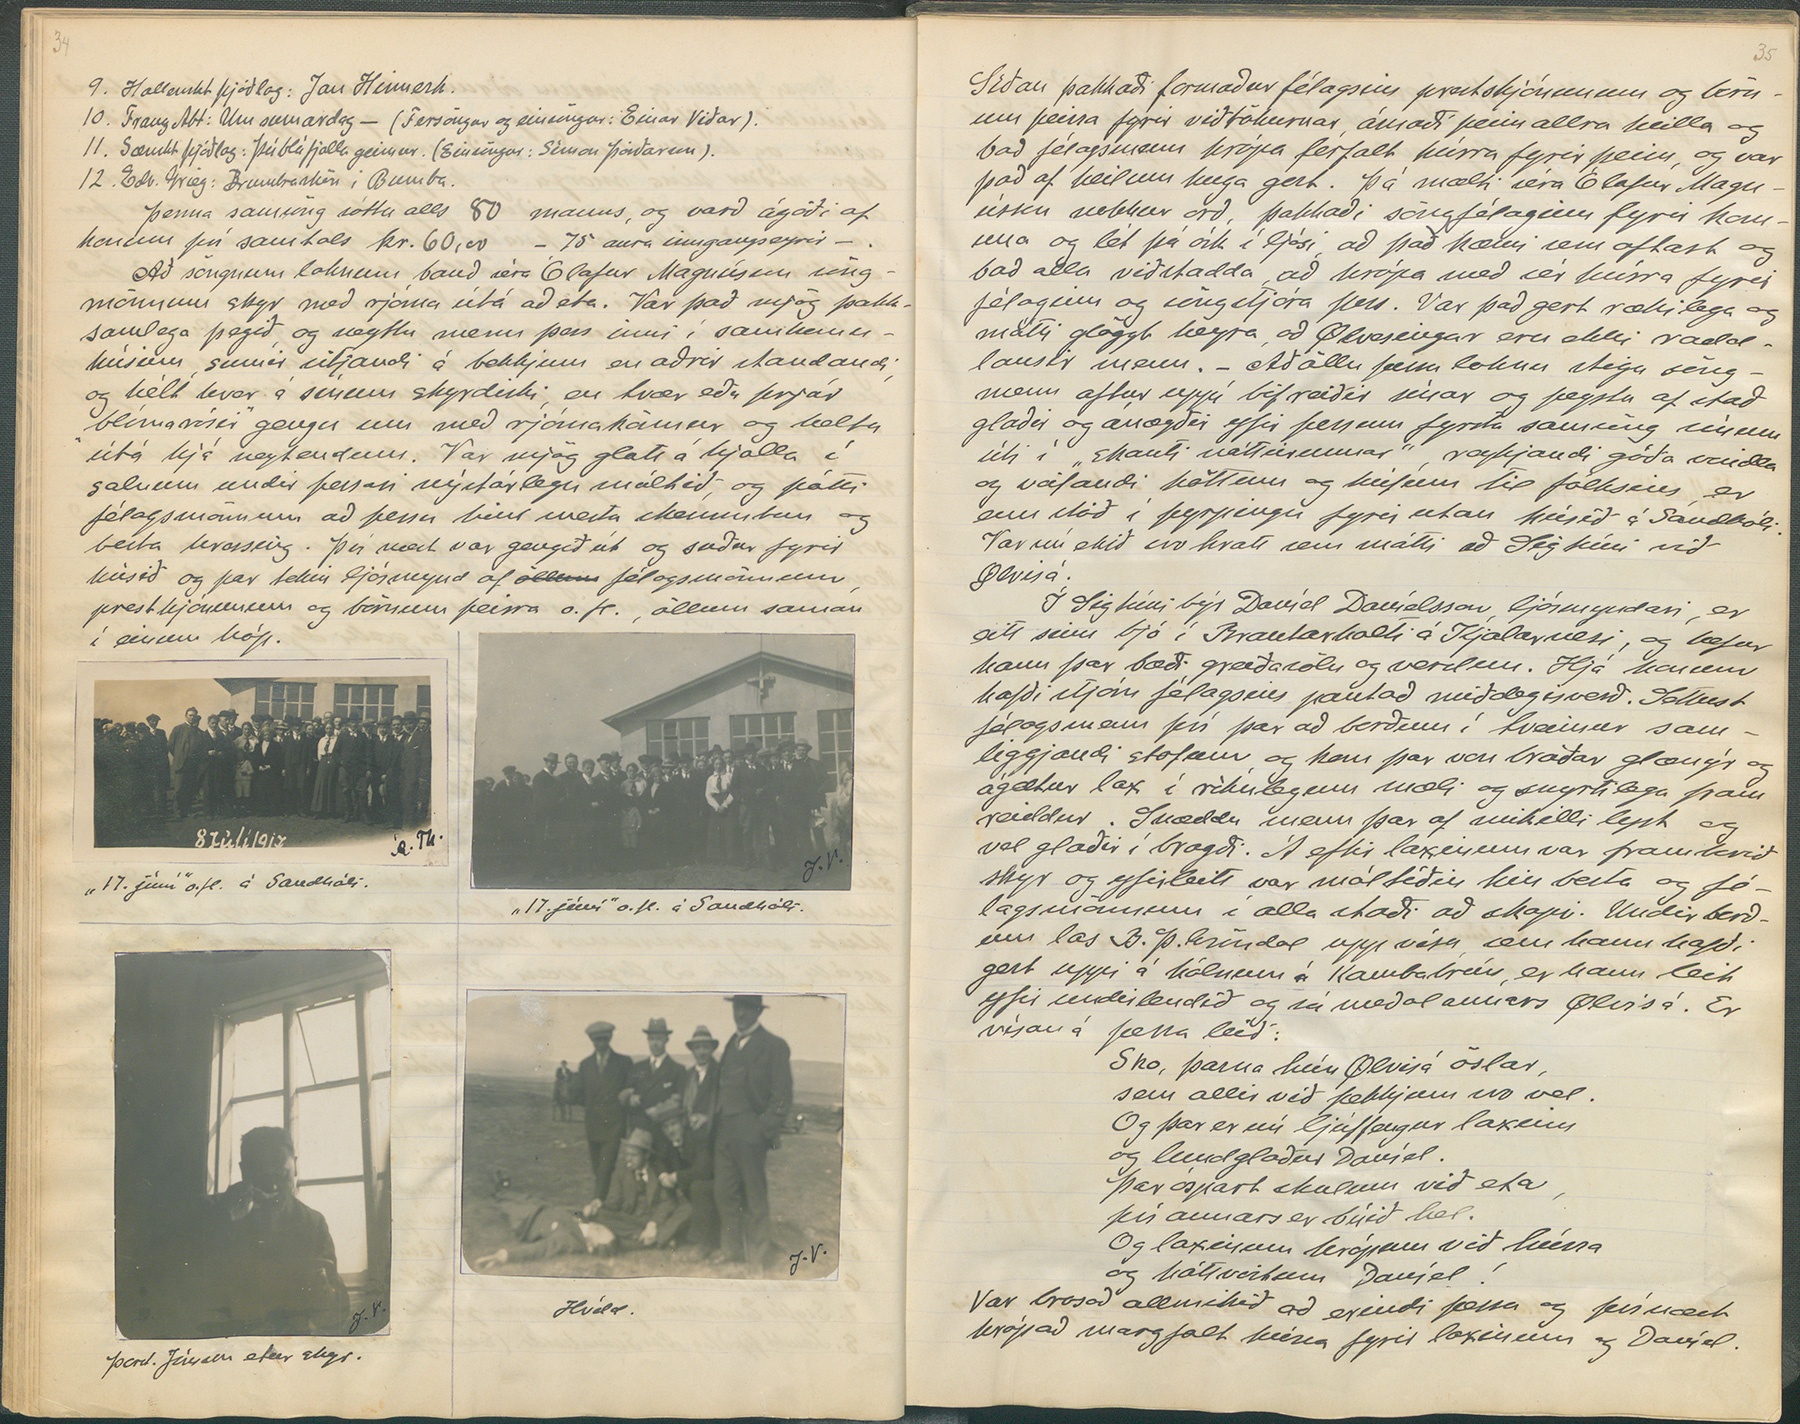 34
9. Hollenskt þjóðlag: Jan Hinnerk.
10. Franz Abt: Um sumardag — (Fersöngur og einsöngur: Einar Viðar).
11. Sænskt þjóðlag: Þú bláfjalla geimur. (Einsöngur: Símon Þórðarson).
12. Edv. Grieg: Brumbasken i Bumba.
Þenna samsöng sóttu alls 80 manns, og varð ágóði af
honum því samtals kr. 60,00 — 75 aura inngangseyrir — .
Að söngnum loknum bauð séra Ólafur Magnússon söng-
mönnum skyr með rjóma útá að eta. Var það mjög þakk-
samlega þegið, og neyttu menn þess inni í samkomu-
húsinu, sumir sitjandi á bekkjum en aðrir standandi,
og hélt hver á sínum skyrdiski, en tvær eða þrjár
„blómarósir“ gengu um með rjómakönnur og heltu
útá hjá neytendum. Var mjög glatt á hjalla í
salnum undir þessari nýstárlegu máltíð, og þótti
félagsmönnum að þessu hin mesta skemmtun og
besta hressing. Því næst var gengið út og suður fyrir
húsið og þar tekin ljósmynd af öllum félagsmönnum,
presthjónunum og börnum þeirra o.fl., öllum saman
í einum hóp.
8 Júlí 1917
Á. Th.
J.V.
„17. júní“ o.fl. á Sandhóli.
„17. júní“ o.fl. á Sandhóli.
J.V.
J.V.
Þorst. Jónsson etur skyr.
Hvíld.
35
Síðan þakkaði formaður félagsins prestshjónunum og börn-
um þeirra fyrir viðtökurnar, árnaði þeim allra heilla og
bað félagsmenn hrópa ferfalt húrra fyrir þeim, og var
það af heilum huga gert. Þá mælti séra Ólafur Magn-
ússon nokkur orð, þakkaði söngfélaginu fyrir kom-
una og lét þá ósk í ljósi, að það kæmi sem oftast og
bað alla viðstadda að hrópa með sér húrra fyrir
félaginu og söngstjóra þess. Var það gert rækilega og
mátti glöggt heyra, að Ølvesingar eru ekki radd-
lausir menn. — Að öllu þessu loknu stigu söng-
menn aftur uppí bifreiðir sínar og þeystu af stað
glaðir og ánægðir yfir þessum fyrsta samsöng sínum
úti í „skauti náttúrunnar“, reykjandi góða vindla
og veifandi höttum og húfum til fólksins, er
enn stóð í þyrpingu fyrir utan húsið á Sandhóli.
Var nú ekið svo hratt sem mátti að Sigtúni við
Ølvisá.
Í Sigtúni býr Daníel Daníelsson, ljósmyndari, er
eitt sinn bjó í Brautarholti á Kjalarnesi, og hefur
hann þar bæði greiðasölu og verslun. Hjá honum
hafði stjórn félagsins pantað miðdegisverð. Settust
félagsmenn því þar að borðum í tveimur sam-
liggjandi stofum og kom þar von bráðar glænýr og
ágætur lax í ríkulegum mæli og snyrtilega fram
reiddur. Snæddu menn þar af mikilli lyst og
vel glaðir í bragði. Á eftir laxinum var framborið
skyr og yfirleitt var máltíðin hin besta og fé-
lagsmönnum í alla staði að skapi. Undir borð-
um las B. Þ. Gröndal upp vísu, sem hann hafði
gert uppi á hólnum á Kambabrún, er hann leit
yfir undirlendið og sá meðal annars Ølvisá. Er
vísan á þessa leið:
Sko, þarna hún Ølvisá öslar,
sem allir við þekkjum svo vel.
Og þar er nú ljúffengur laxinn
og lundglaður Daníel.
Þar óspart skulum við eta,
því annars er búið hel.
Og laxinum hrópum við húrra
og háttvirtum Daníel!
Var brosað allmikið að erindi þessu og því næst
hrópað margfalt húrra fyrir laxinum og Daníel.